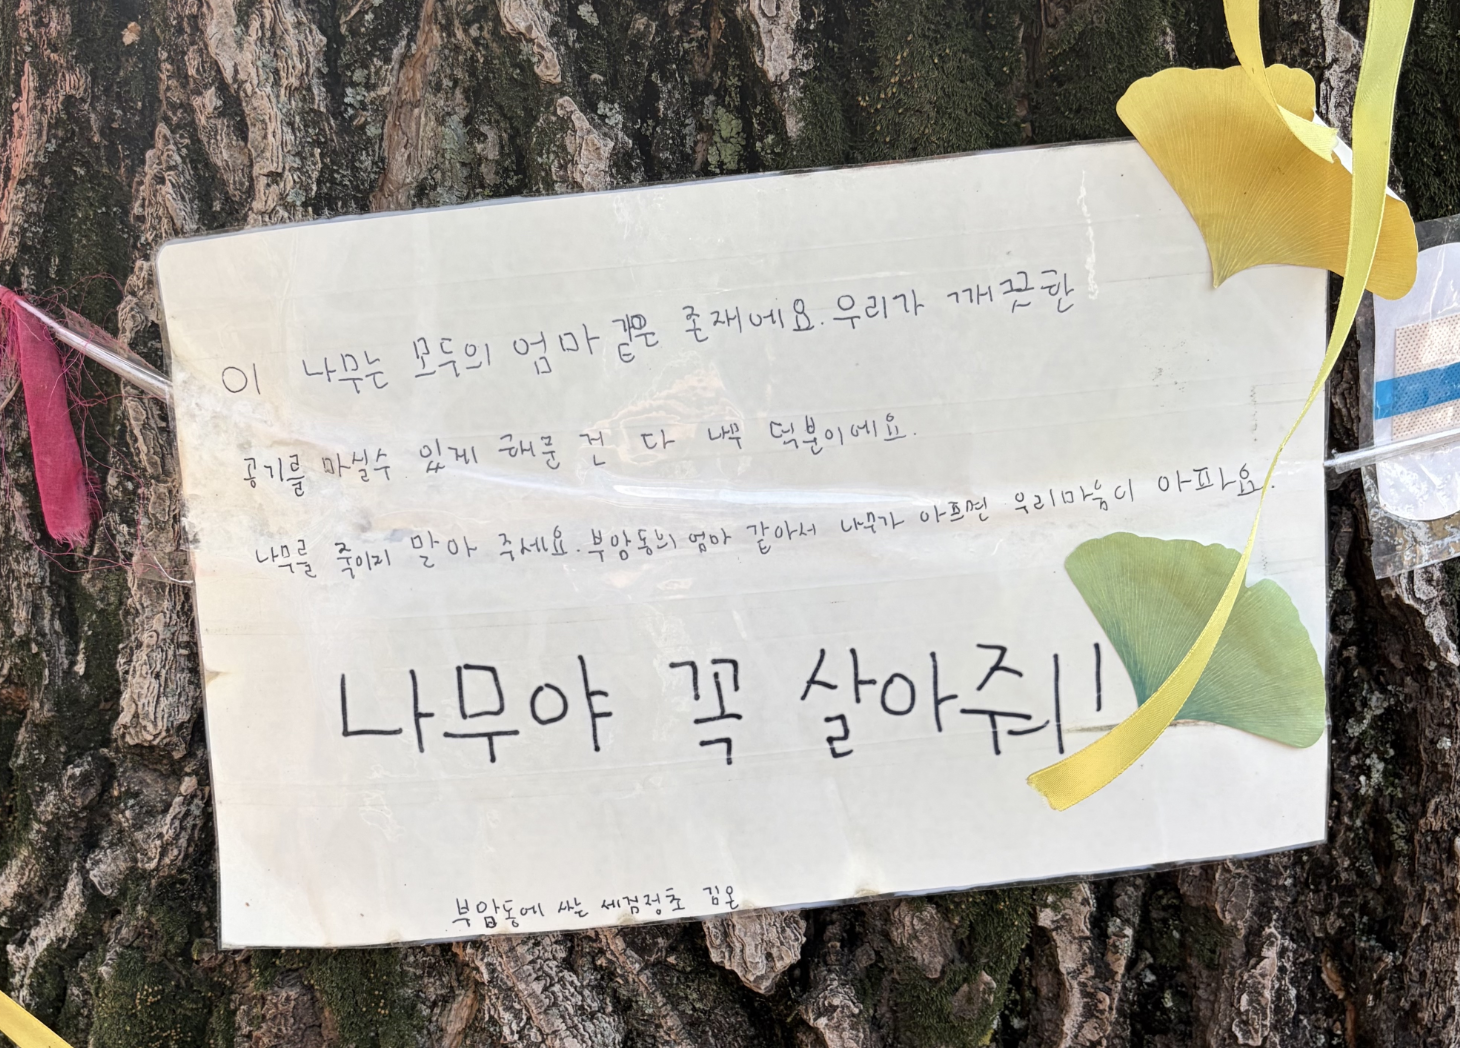 이 나무는 모두의 엄마 같은 존재에요. 우리가 깨끗한
공기를 마실수 있게 해준 건 다 나무 덕분이에요.
나무를 죽이지 말아 주세요. 부암동의 엄마 같아서 나무가 아프면 우리마음이 아파요.
나무야 꼭 살아줘!!
부암동에 사는 세검정초 김율